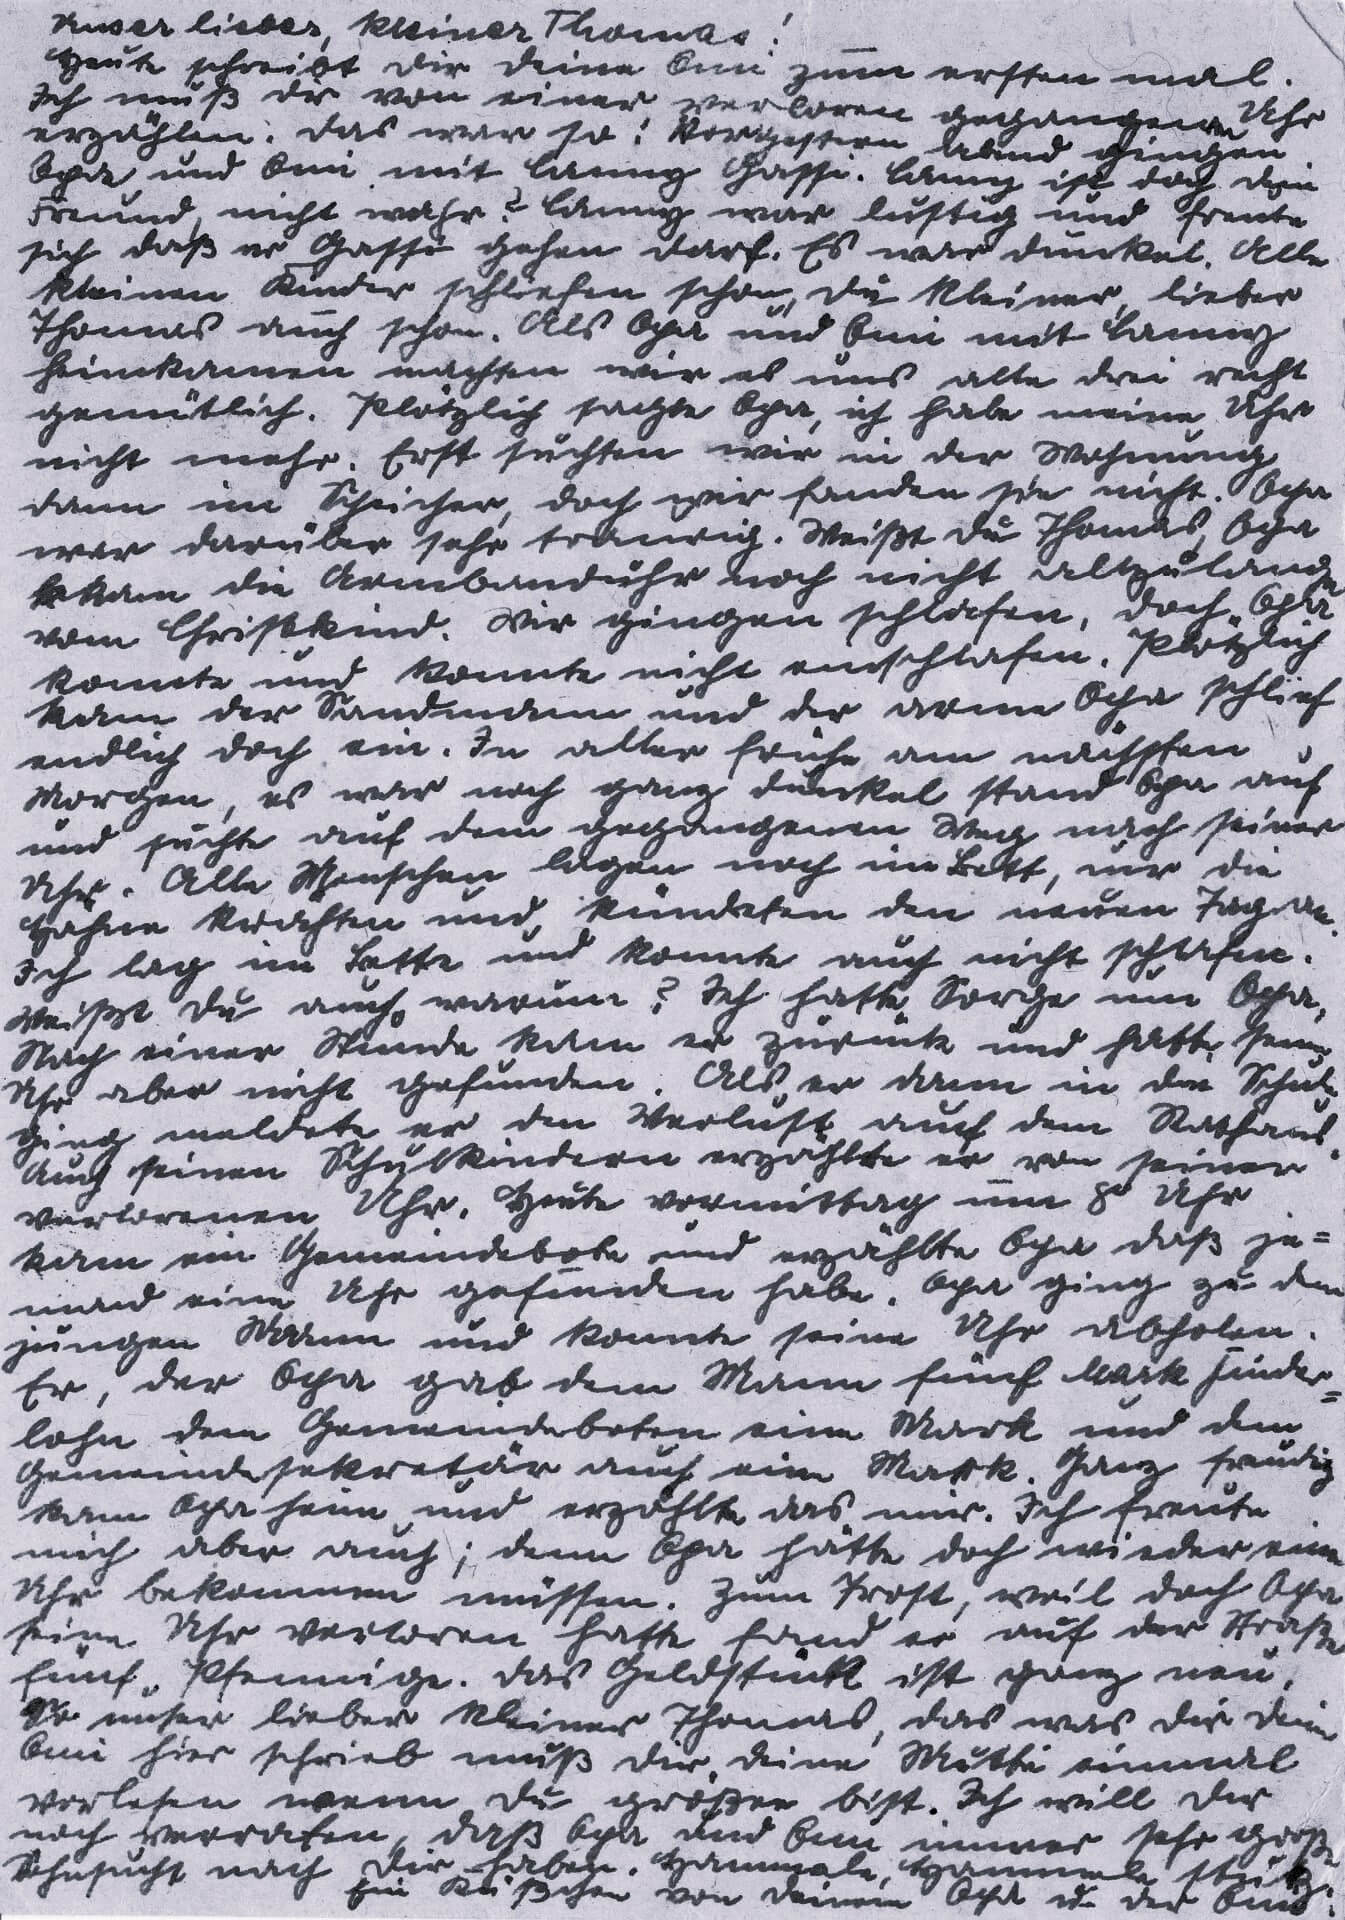 Unser lieber, kleiner Thomas!
Heute schreibt dir deine Omi zum ersten mal.
Ich muß dir von einer verloren gegangenen Uhr
erzählen. Das war so! Vorgestern abend gingen
Opa und Omi mit Lanny Gassi. Lanny ist doch dein
Freund, nicht wahr? Lanny war lustig und freute
sich daß er Gassi gehen darf. Es war dunkel. Alle
kleinen Kinder schliefen schon, du kleiner, lieber
Thomas auch schon. Als Opa und Omi mit Lanny
heimkamen machten wir es uns alle drei recht
gemütlich. Plötzlich sagte Opa, ich habe meine Uhr
nicht mehr. Erst suchten wir in der Wohnung
dann im, doch wir fanden sie nicht. Opa
war darüber sehr traurig. Weißt du Thomas, Opa
bekam die Armbanduhr noch nicht allzulange
vom Christkind. Wir gingen schlafen, doch Opa
konnte und konnte nicht einschlafen. Plötzlich
kam der Sandmann und der arme Opa schlief
endlich doch ein. In aller frühe am nächsten
Morgen, es war noch ganz dunkel stand Opa auf
und suchte auf dem gegangenen Weg nach seiner
Uhr. Alle Menschen lagen noch im Bett, nur die
Hähne krähten und kündeten den neuen Tag an.
Ich lag im Bette und konnte auch nicht schlafen.
Weißt du auch warum? Ich hatte Sorge um Opa,
Nach einer Stunde kam er zurück und hatte seine
Uhr aber nicht gefunden. Als er dann in die Schule
ging meldete er den Verlust auf dem Rathaus.
Auch seinen Schulkindern erzählte er von seiner
verlorenen Uhr. Heute vormittag um 8 Uhr
kam ein Gemeindebote und erzählte Opa daß je=
mand eine Uhr gefunden habe. Opa ging zu dem
jungen Mann und konnte seine Uhr abholen.
Er, der Opa gab dem Mann fünf Mark Finder=
lohn dem Gemeindeboten eine Mark und dem
Gemeindesekretär auch eine Mark. Ganz freudig
kam Opa heim und erzählte das mir. Ich freute
mich aber auch; denn Opa hätte doch wieder eine
Uhr bekommen müssen. Zum Trost, weil doch Opa
seine Uhr verloren hatte fand er auf der Straße
fünf Pfennige. Das Geldstück ist ganz neu.
So unser lieber kleiner Thomas, das was dir deine
Omi hier schrieb muß dir deine Mutti einmal
vorlesen wenn du größer bist. Ich will dir
noch verraten, daß Opa und Omi immer sehr große
Sehnsucht nach dir haben.
Ein Küßchen von deinem Opa u. der Omi.